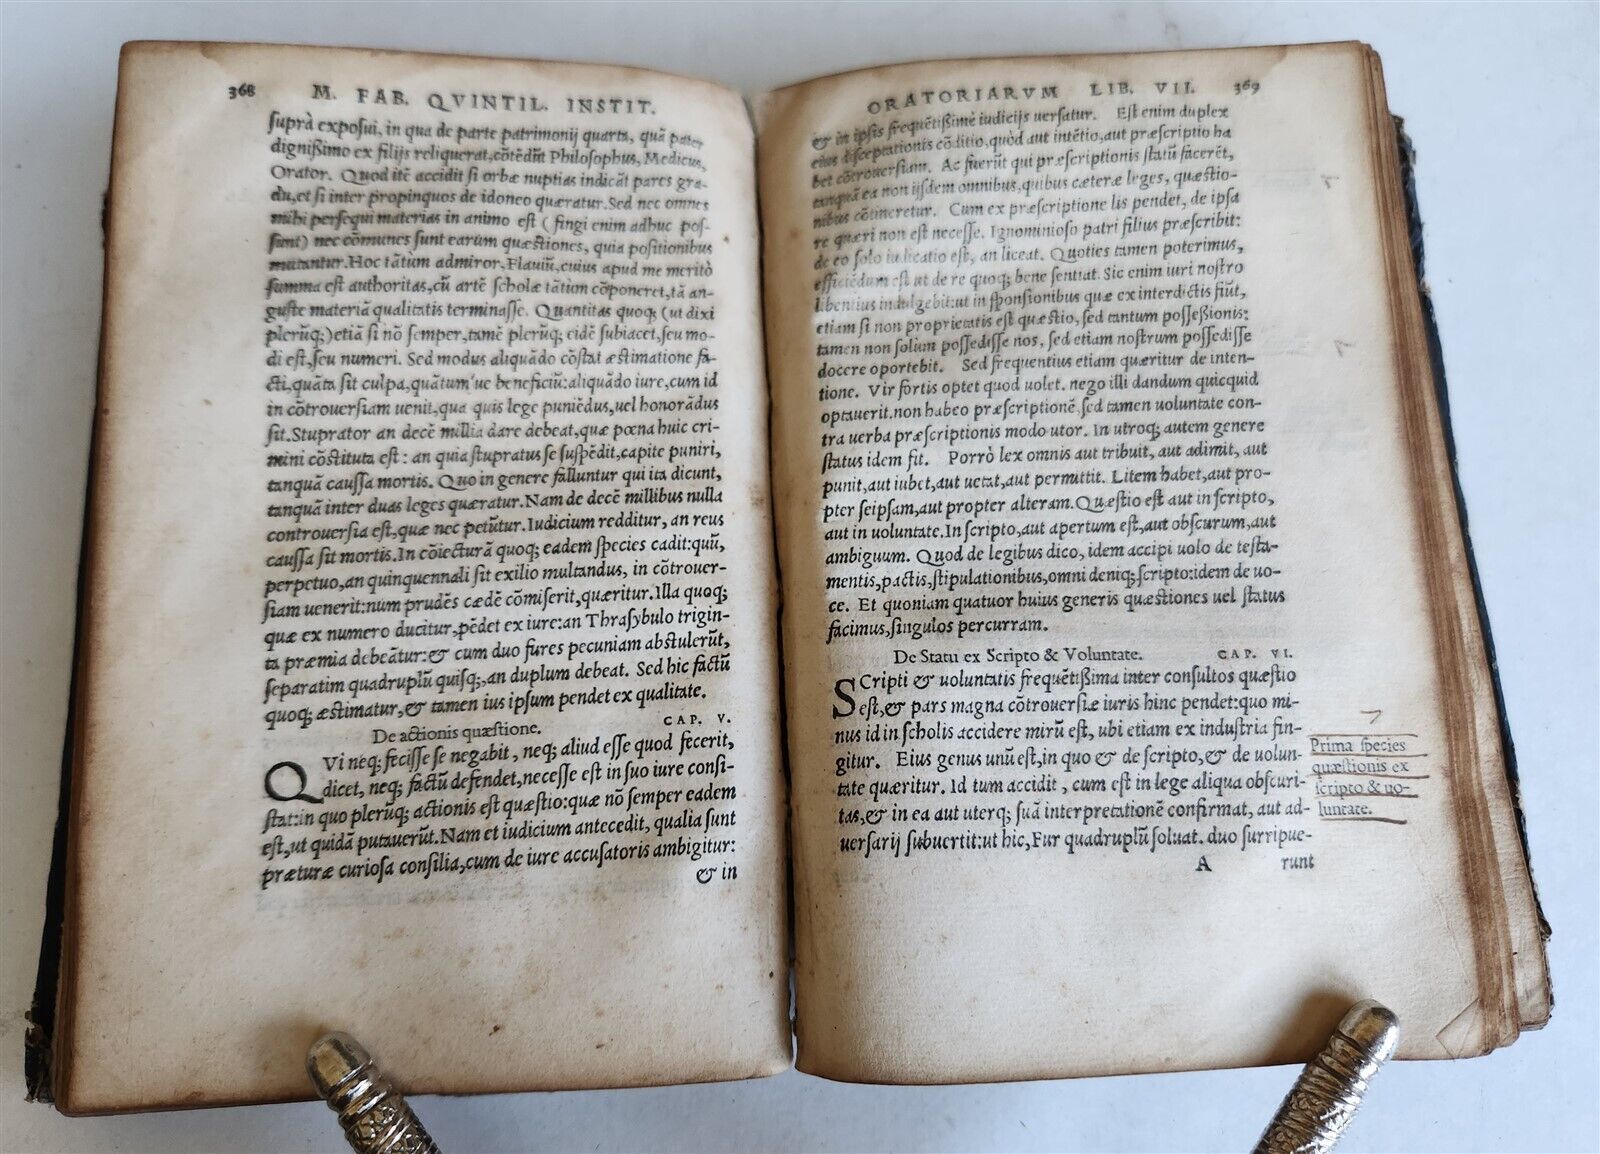 368 M. FAB. QVINTIL. INSTIT.
suprà exposui, in qua de parte patrimonij quarta, quã pater
dignißimo ex filijs reliquerat, cõtẽdũt Philosophus, Medicus,
Orator. Quod itẽ accidit si orbæ nuptias indicãt pares gra-
du, et si inter propinquos de idoneo quæratur. Sed nec omnes
mihi persequi materias in animo est (fingi enim adhuc pos-
sunt) nec cõmunes sunt earum quæstiones, quia positionibus
mutantur. Hoc tãtùm admiror, Flauiũ, cuius apud me meritò
summa est authoritas, cũ artẽ scholæ tãtùm cõponeret, tã an-
gustè materiã qualitatis terminasse. Quantitas quoq; (ut dixi
plerũq;) etiã si nõ semper, tamẽ plerũq; eidẽ subiacet, seu mo-
di est, seu numeri. Sed modus aliquãdo cõstat æstimatione fa-
cti, quãta sit culpa, quãtum'ue beneficiũ: aliquãdo iure, cum id
in cõtrouersiam uenit, qua quis lege puniẽdus, uel honorãdus
sit. Stuprator an decẽ millia dare debeat, quæ pœna huic cri-
mini cõstituta est: an quia stupratus se suspẽdit, capite puniri,
tanquã caussa mortis. Quo in genere falluntur qui ita dicunt,
tanquã inter duas leges quæratur. Nam de decẽ millibus nulla
controuersia est, quæ nec petũtur. Iudicium redditur, an reus
caussa sit mortis. In cõiecturã quoq; eadem species cadit: quũ,
perpetuo, an quinquennali sit exilio multandus, in cõtrouer-
siam uenerit: num prudẽs cædẽ cõmiserit, quæritur. Illa quoq;
quæ ex numero ducitur, pẽdet ex iure: an Thrasybulo trigin-
ta præmia debeãtur: & cum duo fures pecuniam abstulerũt,
separatim quadruplũ quisq;, an duplum debeat. Sed hic factũ
quoq; æstimatur, & tamen ius ipsum pendet ex qualitate.
De actionis quæstione. CAP. V.
QVi neq; fecisse se negabit, neq; aliud esse quod fecerit,
dicet, neq; factũ defendet, necesse est in suo iure consi-
stat: in quo plerũq; actionis est quæstio: quæ nõ semper eadem
est, ut quidã putauerũt. Nam et iudicium antecedit, qualia sunt
præturæ curiosa consilia, cum de iure accusatoris ambigitur:
& in
ORATORIARVM LIB. VII. 369
& in ipsis frequẽtißimè iudicijs uersatur. Est enim duplex
eius disceptationis cõditio, quòd aut intẽtio, aut præscriptio ha
bet cõtrouersiam. Ac fuerũt qui præscriptionis statũ facerẽt,
tanquã ea non ijsdem omnibus, quibus cæteræ leges, quæstio-
nibus cõtineretur. Cum ex præscriptione lis pendet, de ipsa
re quæri non est necesse. Ignominioso patri filius præscribit:
de eo solo iudicatio est, an liceat. Quoties tamen poterimus,
efficiẽdum est ut de re quoq; bene sentiat. Sic enim iuri nostro
libentius indulgebit: ut in sponsionibus quæ ex interdictis fiũt,
etiam si non proprietatis est quæstio, sed tantum possessionis:
tamen non solùm possedisse nos, sed etiam nostrum possedisse
docere oportebit. Sed frequentius etiam quæritur de inten-
tione. Vir fortis optet quod uolet. nego illi dandum quicquid
optauerit. non habeo præscriptionẽ, sed tamen uoluntate con-
tra uerba præscriptionis modo utor. In utroq; autem genere
status idem fit. Porrò lex omnis aut tribuit, aut adimit, aut
punit, aut iubet, aut uetat, aut permittit. Litem habet, aut pro-
pter seipsam, aut propter alteram. Quæstio est aut in scripto,
aut in uoluntate. In scripto, aut apertum est, aut obscurum, aut
ambiguum. Quod de legibus dico, idem accipi uolo de testa-
mentis, pactis, stipulationibus, omni deniq; scripto: idem de uo-
ce. Et quoniam quatuor huius generis quæstiones uel status
facimus, singulos percurram.
De Statu ex Scripto & Voluntate. CAP. VI.
SCripti & uoluntatis frequẽtißima inter consultos quæstio
est, & pars magna cõtrouersiæ iuris hinc pendet: quo mi-
nus id in scholis accidere mirũ est, ubi etiam ex industria fin-
gitur. Eius genus unũ est, in quo & de scripto, & de uolun-
tate quæritur. Id tum accidit, cum est in lege aliqua obscuri-
tas, & in ea aut uterq; suã interpretationẽ confirmat, aut ad-
uersarij subuertit: ut hic, Fur quadruplũ soluat. duo surripue-
A runt
Prima species
quæstionis ex
scripto & uo-
luntate.